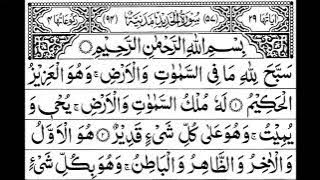 اٰيَاتُهَا ٢٩ (٥٧) سُوْرَةُ الْحَدِيْدِ مَدَنِيَّةٌ (٩٤) رُكُوْعَاتُهَا ٤
بِسْمِ اللهِ الرَّحْمٰنِ الرَّحِيْمِ
سَبَّحَ لِلّٰهِ مَا فِى السَّمٰوٰتِ وَالْاَرْضِ ۚ وَهُوَ الْعَزِيْزُ
الْحَكِيْمُ ۝ لَهٗ مُلْكُ السَّمٰوٰتِ وَالْاَرْضِ ۚ يُحْيٖ وَ
يُمِيْتُ ۚ وَهُوَ عَلٰى كُلِّ شَىْءٍ قَدِيْرٌ ۝ هُوَ الْاَوَّلُ
وَالْاٰخِرُ وَالظَّاهِرُ وَالْبَاطِنُ ۚ وَهُوَ بِكُلِّ شَىْءٍ